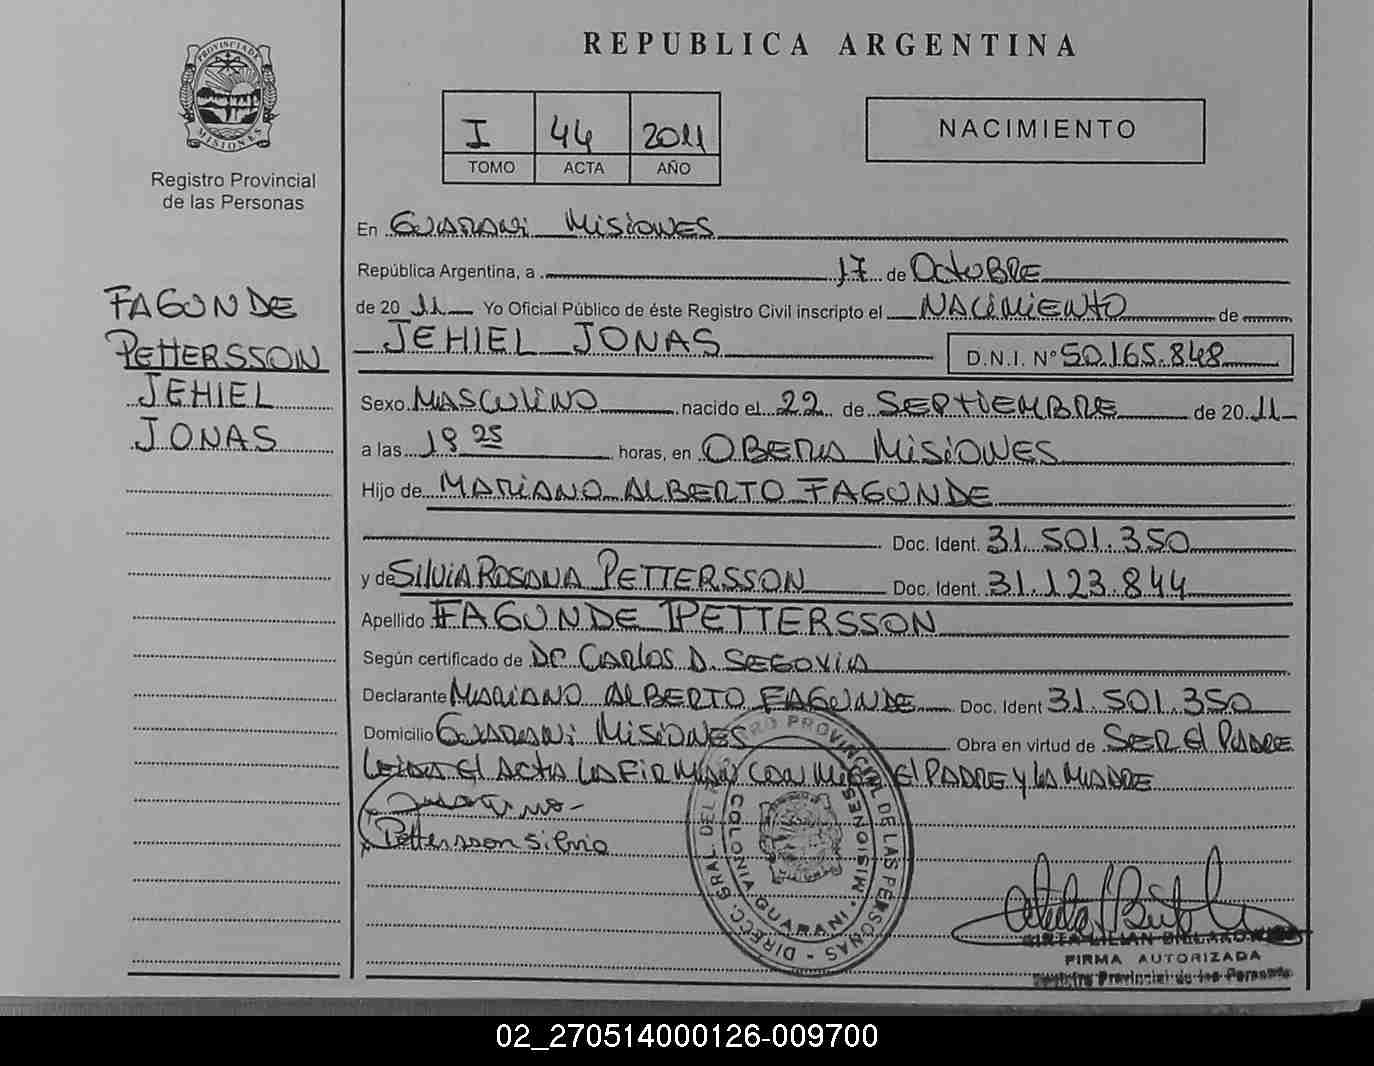 REPUBLICA ARGENTINA
PROVINCIA DE
MISIONES
Registro Provincial
de las Personas
I 44 2011
TOMO ACTA AÑO
NACIMIENTO
FAGUNDE
PETTERSSON
JEHIEL
JONAS
En GUARANI MISIONES
República Argentina, a 17 de OCTUBRE
de 2011 Yo Oficial Público de éste Registro Civil inscripto el NACIMIENTO de
JEHIEL JONAS D.N.I. Nº 50.165.848
Sexo MASCULINO nacido el 22 de SEPTIEMBRE de 2011
a las 19 25 horas, en OBERA MISIONES
Hijo de MARIANO ALBERTO FAGUNDE
Doc. Ident. 31.501.350
y de SILVIA ROSANA PETTERSSON Doc. Ident. 31.123.844
Apellido FAGUNDE PETTERSSON
Según certificado de Dr CARLOS D. SEGOVIA
Declarante MARIANO ALBERTO FAGUNDE Doc. Ident 31.501.350
Domicilio GUARANI MISIONES Obra en virtud de SER El PADRE
LEIDA El ACTA LA FIRMAN CON MIGO El PADRE y LA MADRE
Pettersson Silvia
DIRECC. GRAL. DEL REGISTRO PROVINCIAL DE LAS PERSONAS
COLONIA GUARANI - MISIONES
FIRMA AUTORIZADA
Registro Provincial de las Personas
02_270514000126-009700